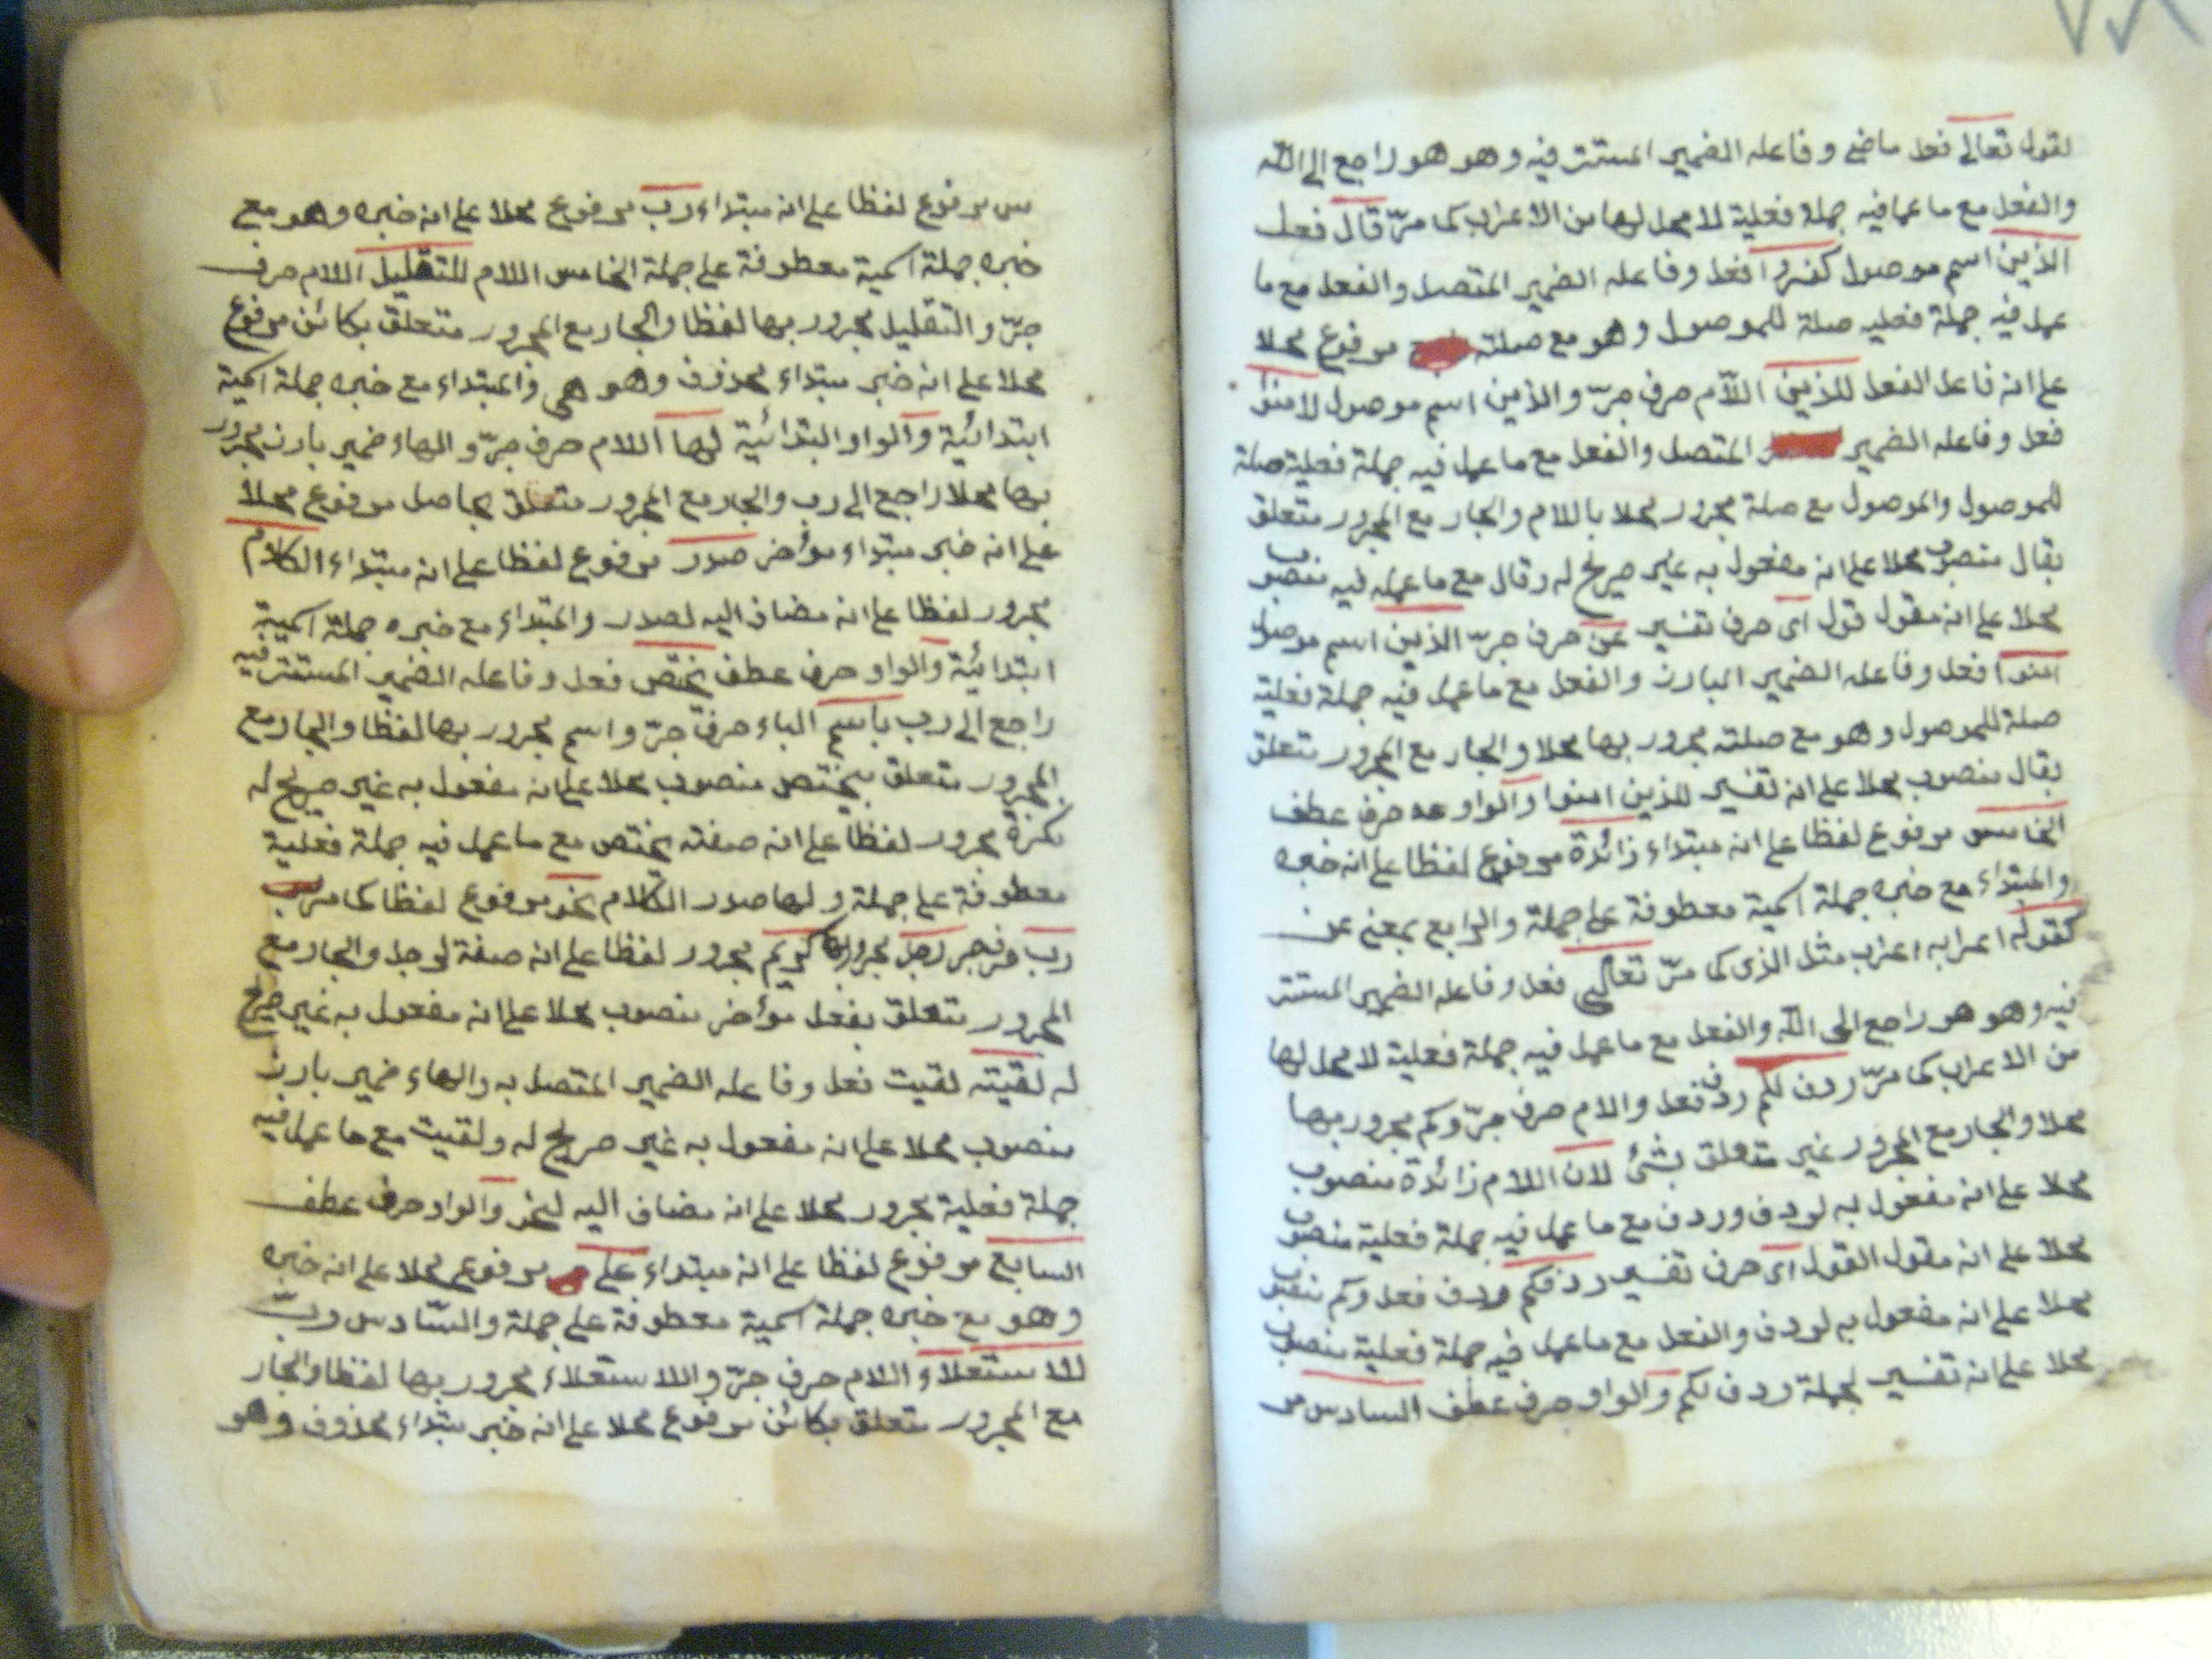 ٧٨
لقول تعالى فعل ماضى وفاعله الضمير المستتر فيه وهو هو راجع الى الله
والفعل مع ما عمل فيه جملة فعلية لا محل لها من الاعراب كما مرّ قال فعل
الذين اسم موصول كفروا فعل وفاعله الضمير المتصل والفعل مع ما
عمل فيه جملة فعليه صلة للموصول وهو مع صلته مرفوع محلا
على انه فاعل الفعل للذين اللّام حرف جرّ والذين اسم موصول لامنوا
فعل وفاعله الضمير المتصل والفعل مع ما عمل فيه جملة فعلية صلة
للموصول والموصول مع صلة مجرور محلا باللام والجار مع المجرور متعلق
بقال منصوب محلا على انه مفعول به غير صريح له وقال مع ما عمله فيه منصوب
محلا على انه مقول قول اى حرف تفسير عن حرف جرّ الذين اسم موصول
امنوا فعل وفاعله الضمير البارز والفعل مع ما عمل فيه جملة فعلية
صلة للموصول وهو مع صلته مجرور بها محلا والجار مع المجرور متعلق
بقال منصوب محلا على انه تفسير للذين امنوا والواو حرف عطف
الخامس مرفوع لفظا على انه مبتداء زائدة مرفوع لفظا على انه خبره
والمبتداء مع خبره جملة اسمية معطوفة على جملة والرابع بمعنى عن
كقوله اعرابه اعراب مثل الذى كما مرّ تعالى فعل وفاعله الضمير المستتر
فيه وهو هو راجع الى الله والفعل مع ما عمل فيه جملة فعلية لا محل لها
من الاعراب كما مرّ ردف لكم ردف فعل والام حرف جرّ وكم مجرور بها
محلا والجار مع المجرور غير متعلق بشئ لان اللام زائدة منصوب
محلا على انه مفعول به لردف وردف مع ما عمل فيه جملة فعلية منصوب
محلا على انه مقول القول اى حرف تفسير ردفكم ردف فعل وكم منصوب
محلا على انه مفعول به لردف والفعل مع ما عمل فيه جملة فعلية منصوب
محلا على انه تفسير لجملة ردف لكم والواو حرف عطف السادس مر
مرفوع لفظا على انه مبتداء رب مرفوع محلا على انه خبره وهو مع
خبره جملة اسمية معطوفة على جملة الخامس اللام للتقليل اللام حرف
جرّ والتقليل مجرور بها لفظا والجار مع المجرور متعلق بكائن مرفوع
محلا على انه خبر مبتداء محذوف وهو هى والمبتداء مع خبره جملة اسمية
ابتدائية والواو البتدائية لها اللام حرف جرّ والهاء ضمير بارز مجرور
بها محلا راجع الى رب والجار مع المجرور متعلق بحاصل مرفوع محلا
على انه خبر مبتداء مؤخر صدر مرفوع لفظا على انه مبتداء الكلام
مجرور لفظا على انه مضاف اليه لصدر والمبتداء مع خبره جملة اسمية
ابتدائية والواو حرف عطف يختص فعل وفاعله الضمير المستتر فيه
راجع الى رب باسم الباء حرف جرّ واسم مجرور بها لفظا والجار مع
المجرور متعلق بيختص منصوب محلا على انه مفعول به غير صريح له
نكرة مجرور لفظا على انه صفته يختص مع ما عمل فيه جملة فعلية
معطوفة على جملة ولها صدر الكلام نحو مرفوع لفظا كما مرّ
رب حرف جر رجل مجرور بها كريم مجرور لفظا على انه صفة لرجل والجار مع
المجرور متعلق بفعل مؤخر منصوب محلا على انه مفعول به غير صريح
له لقيته لقيت فعل وفاعله الضمير المتصل به والهاء ضمير بارز
منصوب محلا على انه مفعول به غير صريح له ولقيت مع ما عمل فيه
جملة فعلية مجرور محلا على انه مضاف اليه لنحو والواو حرف عطف
السابع مرفوع لفظا على انه مبتداء على مرفوع محلا على انه خبره
وهو مع خبره جملة اسمية معطوفة على جملة والسّادس وربّ
للاستعلاء اللام حرف جرّ واللاستعلاء مجرور بها لفظا والجار
مع المجرور متعلق بكائن مرفوع محلا على انه خبر مبتداء محذوف وهو